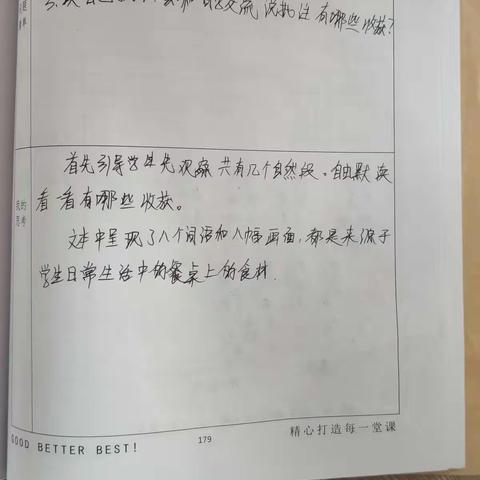 交流,说说这有哪些收获?
首先引导学生先观察共有几个自然段。自由默读
看一看有哪些收获。
文本中呈现了八个词语和八幅画面,都是来源于
学生日常生活中的餐桌上的食材.
我的
思考
GOOD BETTER BEST!
179
精心打造每一堂课